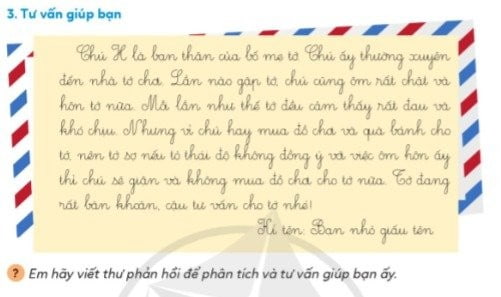 3. Tư vấn giúp bạn
Chú H là bạn thân của bố mẹ tớ. Chú ấy thường xuyên
đến nhà tớ chơi. Lần nào gặp tớ, chú cũng ôm rất chặt và
hôn tớ nữa. Mỗi lần như thế tớ đều cảm thấy rất đau và
khó chịu. Nhưng vì chú hay mua đồ chơi và quà bánh cho
tớ, nên tớ sợ nếu tỏ thái độ không đồng ý với việc ôm hôn ấy
thì chú sẽ giận và không mua đồ chơi cho tớ nữa. Tớ đang
rất băn khoăn, cậu tư vấn cho tớ nhé!
Kí tên: Bạn nhỏ giấu tên
? Em hãy viết thư phản hồi để phân tích và tư vấn giúp bạn ấy.